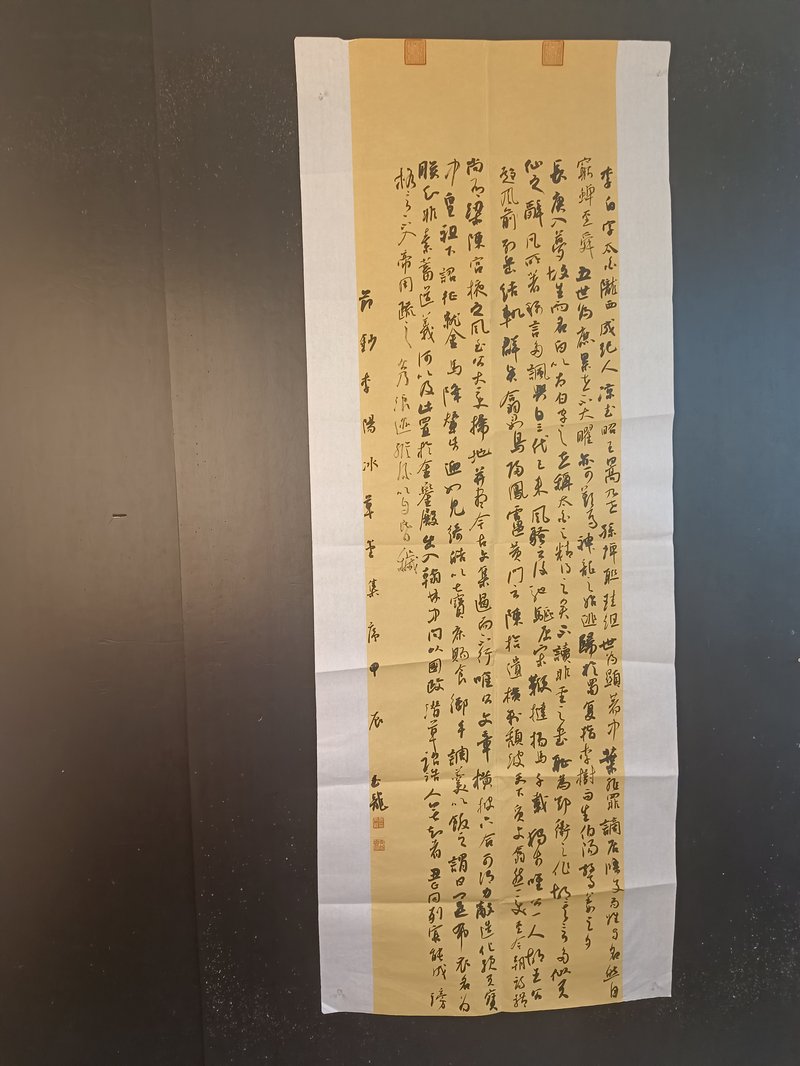 李白字太白隴西成紀人涼武昭王暠九世孫蟬聯珪組世為顯著中葉非罪謫居條支易姓與名然自
窮蟬至舜五世為庶累世不大曜亦可歎焉神龍之始逃歸於蜀復指李樹而生伯陽驚姜之夕
長庚入夢故生而名白以太白字之世稱太白之精得之矣不讀非聖之書恥為鄭衛之作故其言多似天
仙之辭凡所著稱言多諷興自三代已來風騷之後馳驅屈宋鞭撻揚馬千載獨步唯公一人故王公
趨風前列岳結軌群賢翕習鳥歸鳳盧黃門云陳拾遺橫制頹波天下質文翕然一變至今朝詩體
尚有梁陳宮掖之風至公大變掃地並盡今古文集遏而不行唯公文章橫被六合可謂力敵造化歟天寶
中皇祖下詔徵就金馬降輦步迎如見綺皓以七寶床賜食御手調羹以飯之謂曰卿是布衣名為
朕知非素蓄道義何以及此置於金鑾殿出入翰林中問以國政潛草詔誥人無知者丑正同列害能成謗
格言不入帝用疏之公乃浪跡縱酒以自昏穢
節鈔李陽冰草堂集序甲辰玉龍